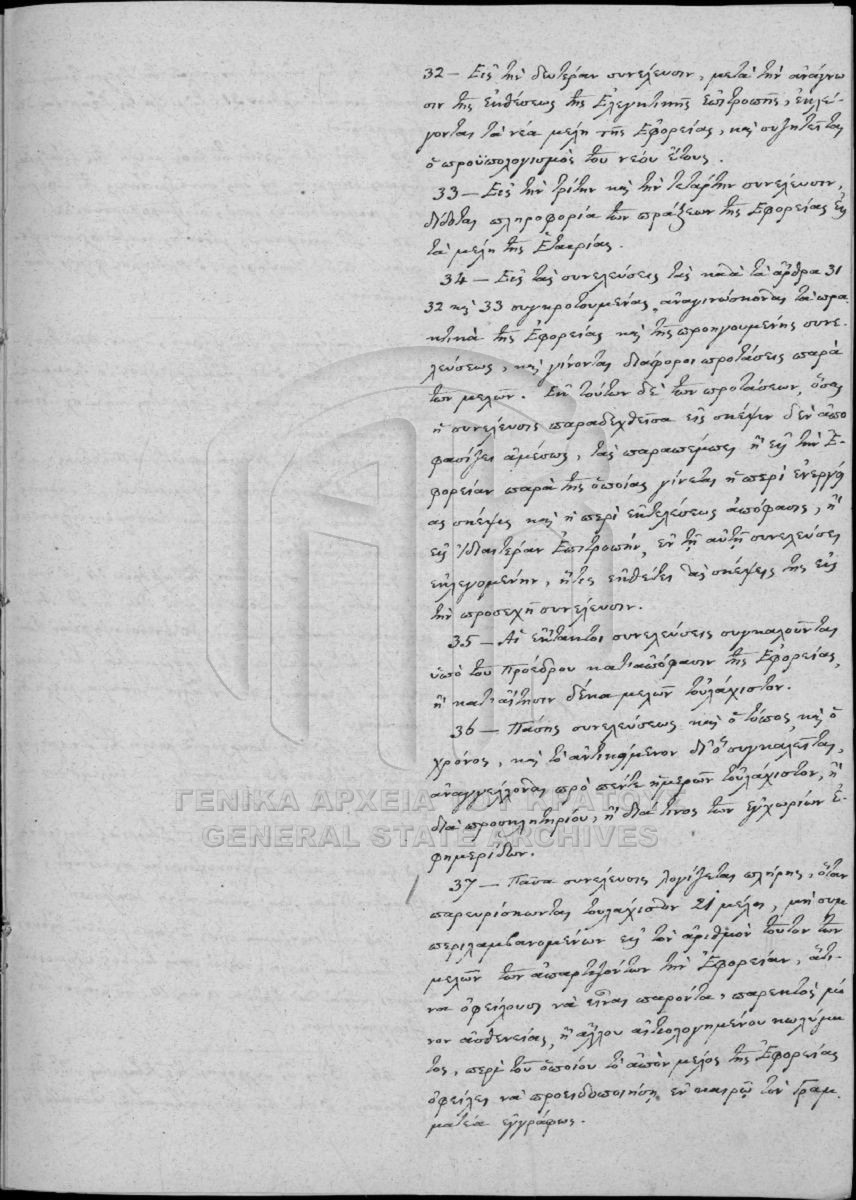 32 — Εἰς τὴν δευτέραν συνέλευσιν, μετὰ τὴν ἀνάγνω
σιν τῆς ἐκθέσεως τῆς Ἐλεγκτικῆς Ἐπιτροπῆς, ἐκλέ-
γονται τὰ νέα μέλη τῆς Ἐφορείας, καὶ συζητεῖται
ὁ προϋπολογισμὸς τοῦ νέου ἔτους.
33 — Εἰς τὴν τρίτην καὶ τὴν τετάρτην συνέλευσιν,
δίδεται πληροφορία τῶν πράξεων τῆς Ἐφορείας εἰς
τὰ μέλη τῆς Ἑταιρίας.
34 — Εἰς τὰς συνελεύσεις τὰς κατὰ τὰ ἄρθρα 31
32 καὶ 33 συγκροτουμένας, ἀναγινώσκονται τὰ πρα-
κτικὰ τῆς Ἐφορείας καὶ τῆς προηγουμένης συνε-
λεύσεως, καὶ γίνονται διάφοροι προτάσεις παρὰ
τῶν μελῶν. Ἐκ τούτων δὲ τῶν προτάσεων, ὅσας
ἡ συνέλευσις παραδεχθεῖσα εἰς σκέψιν δὲν ἀπο
φασίζει ἀμέσως, τὰς παραπέμπει ἢ εἰς τὴν Ἐ-
φορείαν παρὰ τῆς ὁποίας γίνεται ἡ περὶ ἐνεργεί
ας σκέψις καὶ ἡ περὶ ἐκτελέσεως ἀπόφασις, ἢ
εἰς Ἰδιαιτέραν Ἐπιτροπήν, ἐν τῇ αὐτῇ συνελεύσει
ἐκλεγομένην, ἥτις ἐκθέτει τὰς σκέψεις της εἰς
τὴν προσεχῆ συνέλευσιν.
35 — Αἱ ἔκτακτοι συνελεύσεις συγκαλοῦνται
ὑπὸ τοῦ Προέδρου κατ' ἀπόφασιν τῆς Ἐφορείας,
ἢ κατ' αἴτησιν δέκα μελῶν τοὐλάχιστον.
36 — Πάσης συνελεύσεως καὶ ὁ τόπος, καὶ ὁ
χρόνος, καὶ τὸ ἀντικείμενον δι' ὃ συγκαλεῖται,
ἀναγγέλλονται πρὸ πέντε ἡμερῶν τοὐλάχιστον, ἢ
διὰ προσκλητηρίου, ἢ διά τινος τῶν ἐγχωρίων Ἐ-
φημερίδων.
37 — Πᾶσα συνέλευσις λογίζεται πλήρης, ὅταν
παρευρίσκωνται τοὐλάχιστον 21 μέλη, μὴ συμ
περιλαμβανομένων εἰς τὸν ἀριθμὸν τοῦτον τῶν
μελῶν τῶν ἀπαρτιζόντων τὴν Ἐφορείαν, ἅτι-
να ὀφείλουσι νὰ εἶναι παρόντα, παρεκτὸς μό
νον ἀσθενείας, ἢ ἄλλου αἰτιολογημένου κωλύμα
τος, περὶ τοῦ ὁποίου τὸ ἀπὸν μέλος τῆς Ἐφορείας
ὀφείλει νὰ προειδοποιήσῃ ἐν καιρῷ τὸν Γραμ-
ματέα ἐγγράφως.
ΓΕΝΙΚΑ ΑΡΧΕΙΑ ΤΟΥ ΚΡΑΤΟΥΣ
GENERAL STATE ARCHIVES